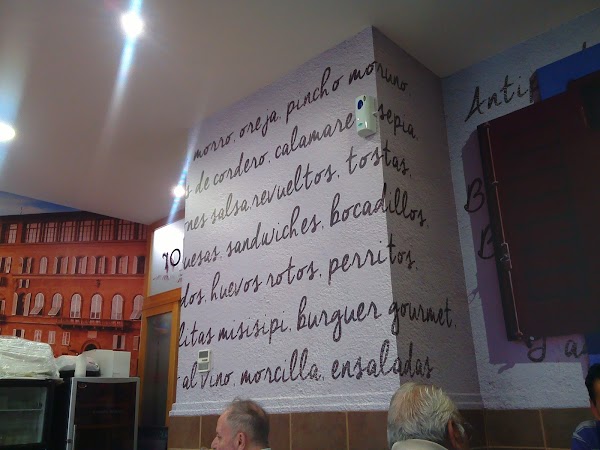 morro, oreja, pincho moruno,
de cordero, calamares, sepia,
nes salsa, revueltos, tostas,
uesas, sandwiches, bocadillos,
dos, huevos rotos, perritos,
litas misisipi, burguer gourmet,
al vino, morcilla, ensaladas